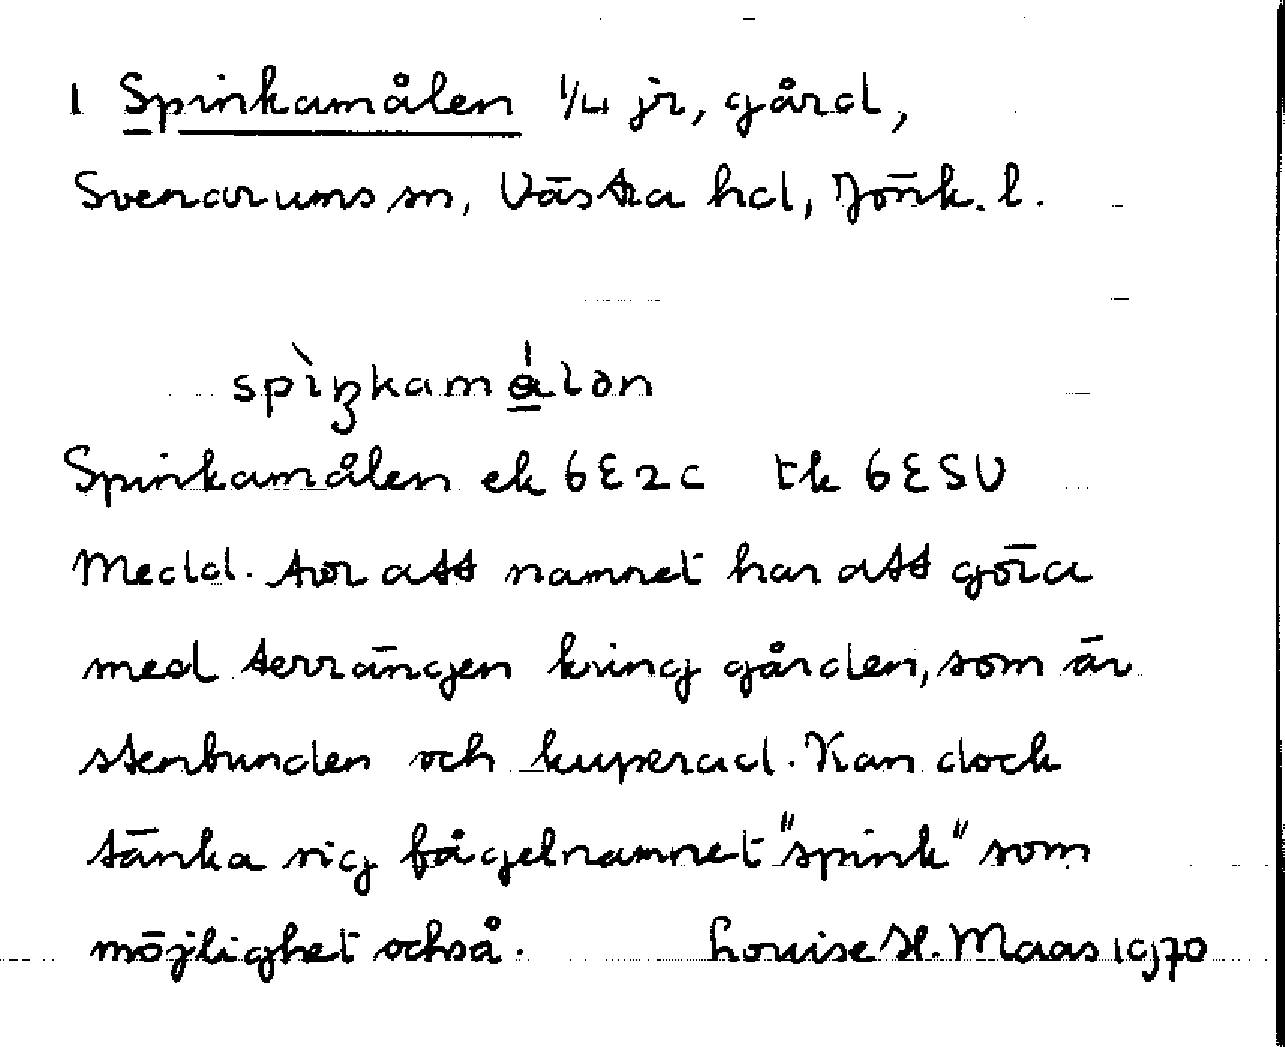 1 Spinkamålen 1/4 jr, gård,
Svenarums sn, Västra hd, Jönk. l.
spìŋkamá̱lən
Spinkamålen ek 6E2c tk 6ESV
Medd. tror att namnet har att göra
med terrängen kring gården, som är
stenbunden och kuperad. Kan dock
tänka sig fågelnamnet "spink" som
möjlighet också. Louise H. Maas 1970